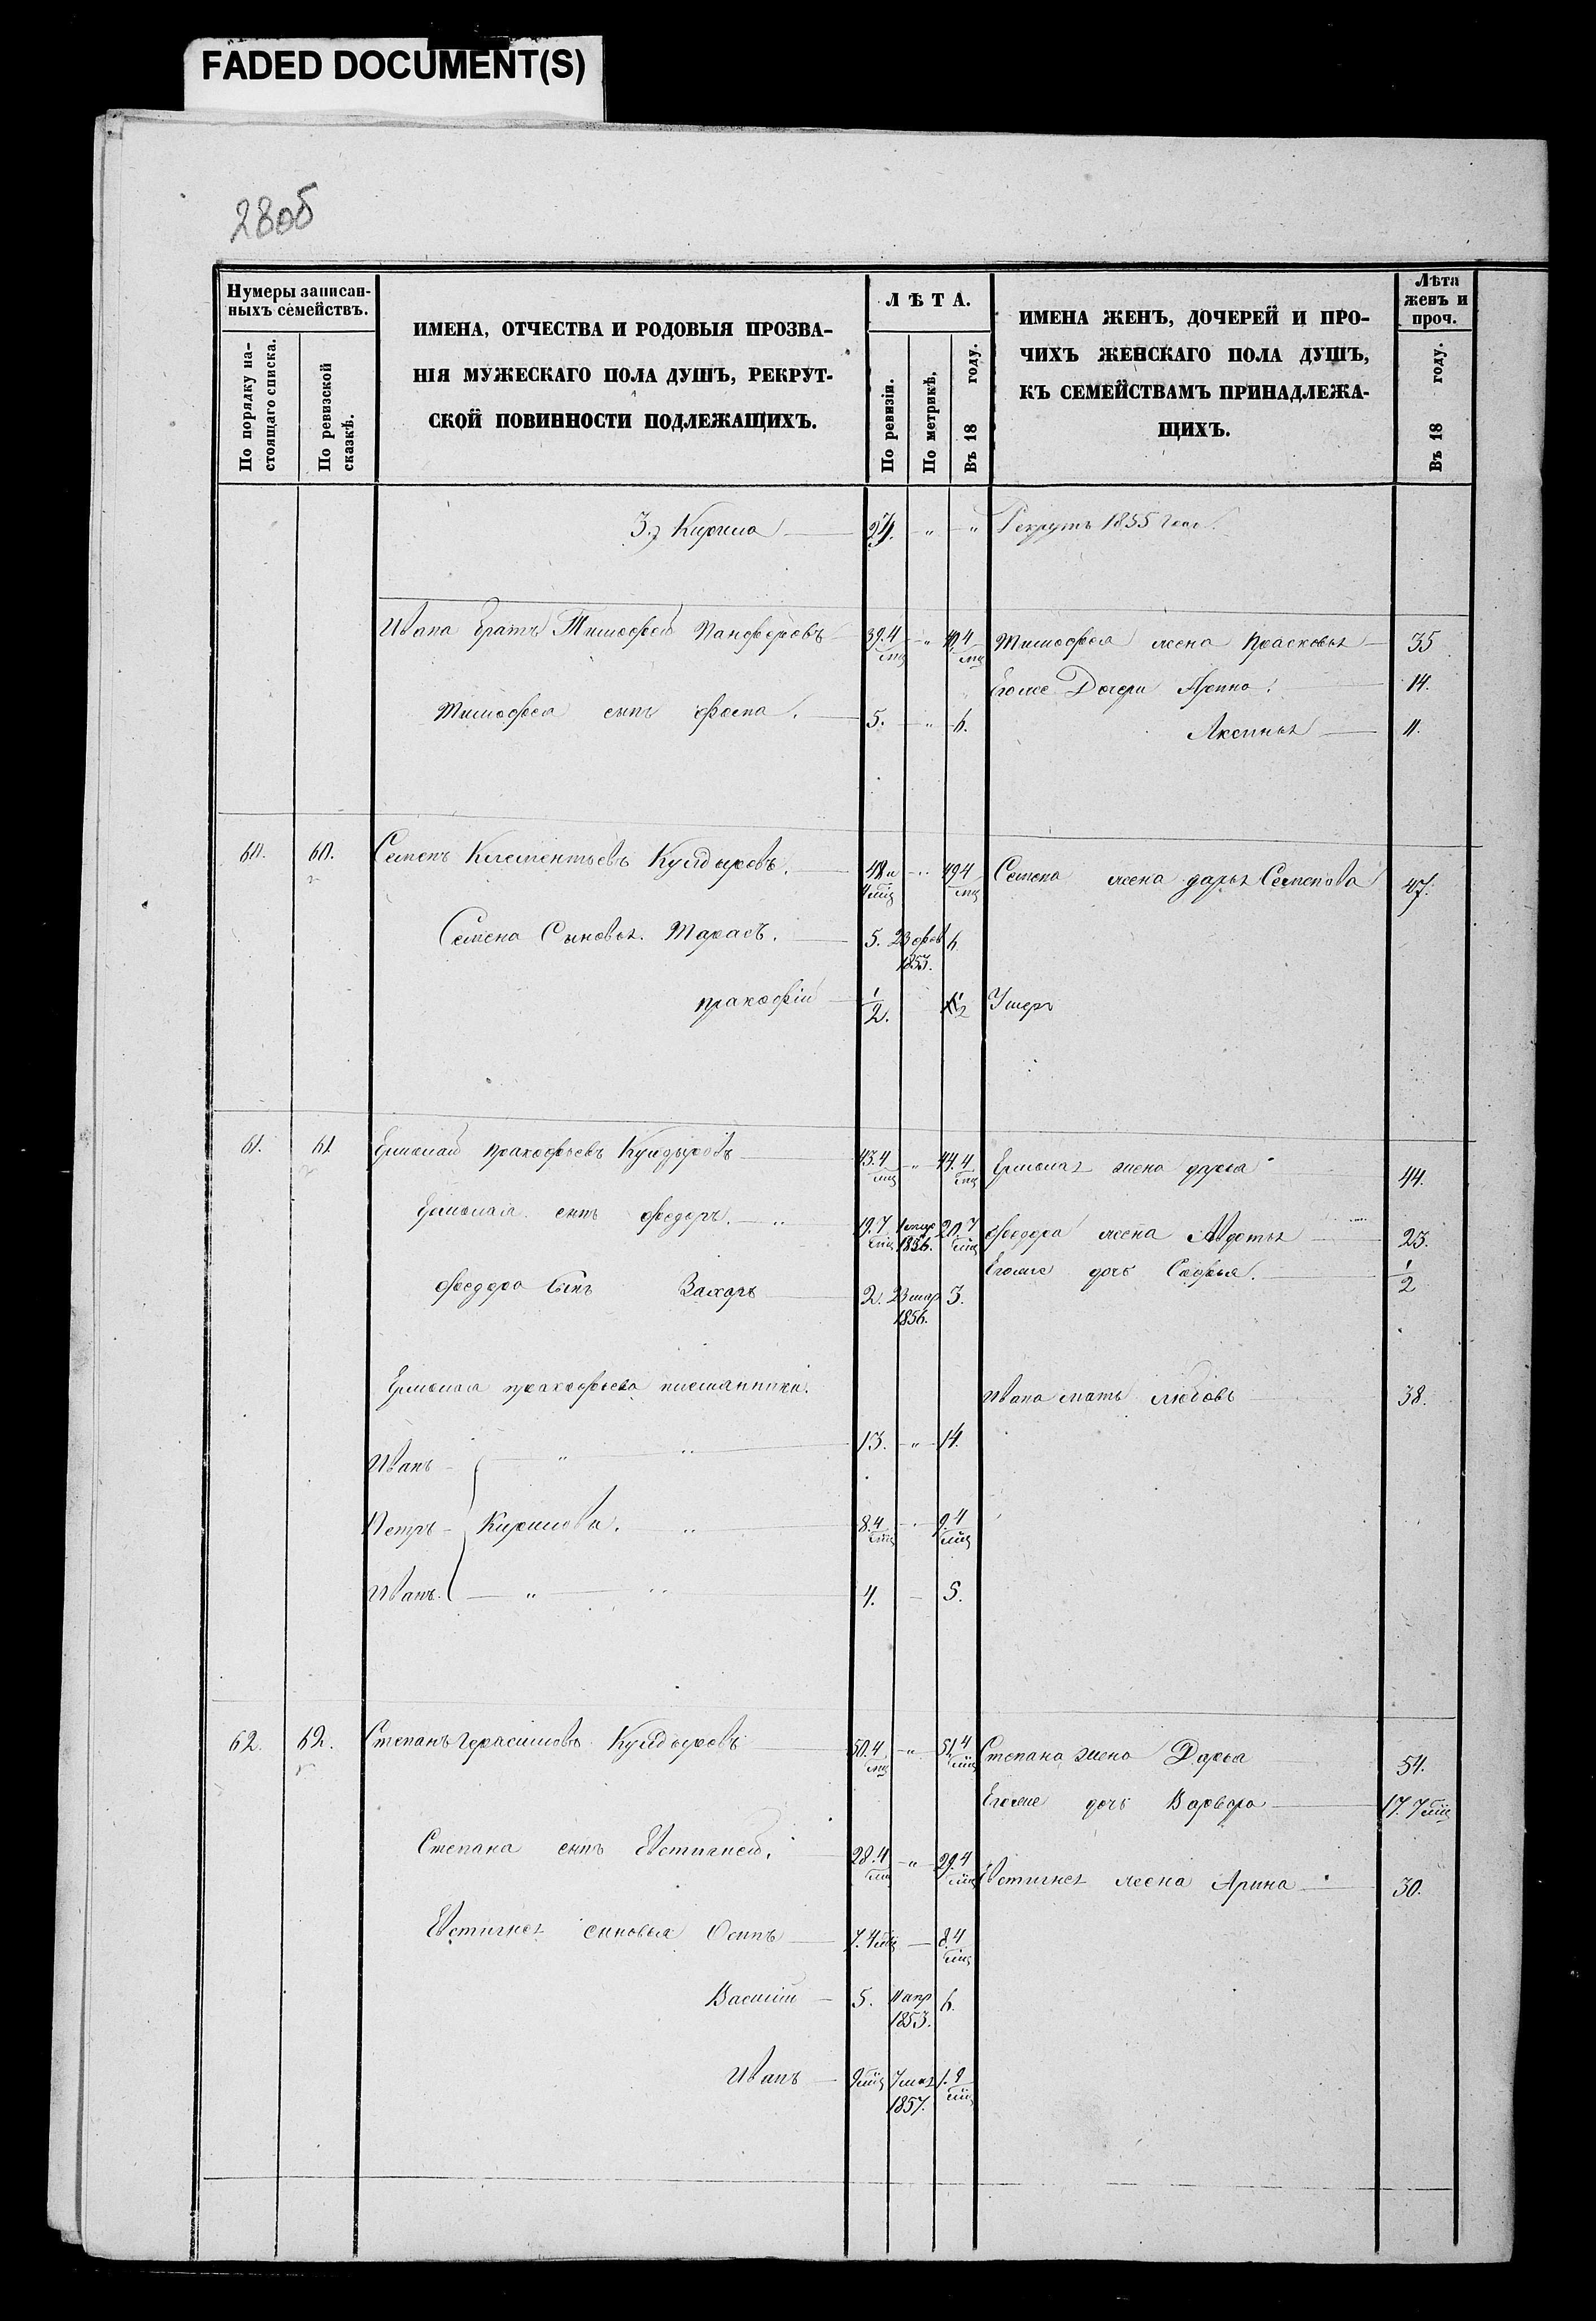 FADED DOCUMENT(S)
28об
Нумеры записан-
ныхъ семействъ.
По порядку на-
стоящаго списка.
По ревизской
сказкѣ.
ИМЕНА, ОТЧЕСТВА И РОДОВЫЯ ПРОЗВА-
НІЯ МУЖЕСКАГО ПОЛА ДУШЪ, РЕКРУТ-
СКОЙ ПОВИННОСТИ ПОДЛЕЖАЩИХЪ.
ЛѢТА.
По ревизіи.
По метрикѣ.
Въ 18 году.
ИМЕНА ЖЕНЪ, ДОЧЕРЕЙ И ПРО-
ЧИХЪ ЖЕНСКАГО ПОЛА ДУШЪ,
КЪ СЕМЕЙСТВАМЪ ПРИНАДЛЕЖА-
ЩИХЪ.
Лѣта
женъ и
проч.
Въ 18 году.
3.) Кирила 24. " " Рекрутъ 1855 года.
Ивана братъ Тимофей Панферовъ 39.4 мц " 40.4 мц Тимофея жена Прасковья 35
Егоже Дочери Арина. 14.
Тимофея сынъ 5. " 6.
Аксинья 11.
60. 60. Семенъ Клементьевъ Кулдыровъ. 48 и 4 мц " 49 4 мц Семена жена дарья Семенова 47.
Семена Сыновья. Тарасъ. 5. 23 фев 1853. 6
пракофій 1/2. 1/2 Умеръ
61. 61 Ермолай пракофьевъ Кулдыровъ 43.4 мц " 44.4 мц Ермолая жена дарья 44.
Ермолая сынъ федоръ. " 19.7 мц 1836. 20.7 мц федора жена Авдотья 23.
Егоже дочь Софья. 1/2
федора Сынъ Захаръ 2. 23 мар 1856. 3.
Ермолая пракофьева племянники.
Ивана мать любовь 38.
Иванъ " " 13. " 14.
Петръ Кириловы. " 8.4 мц " 9.4 мц
Иванъ. " " 4. 5.
62. 62. Степанъ Герасимовъ Кулдыровъ 50.4 мц " 51.4 мц Степана жена Дарья 54.
Егоже дочь Варвара 17.7 мц
Степана сынъ Евстигней. 28.4 мц " 29.4 мц Евстигнея жена Арина 30.
Евстигнея сыновья Осипъ 7.4 мц 8.4 мц
Василій 5. 11 апр 1853. 6.
Иванъ 9 мц 7 мая 1857. 1.9 мц